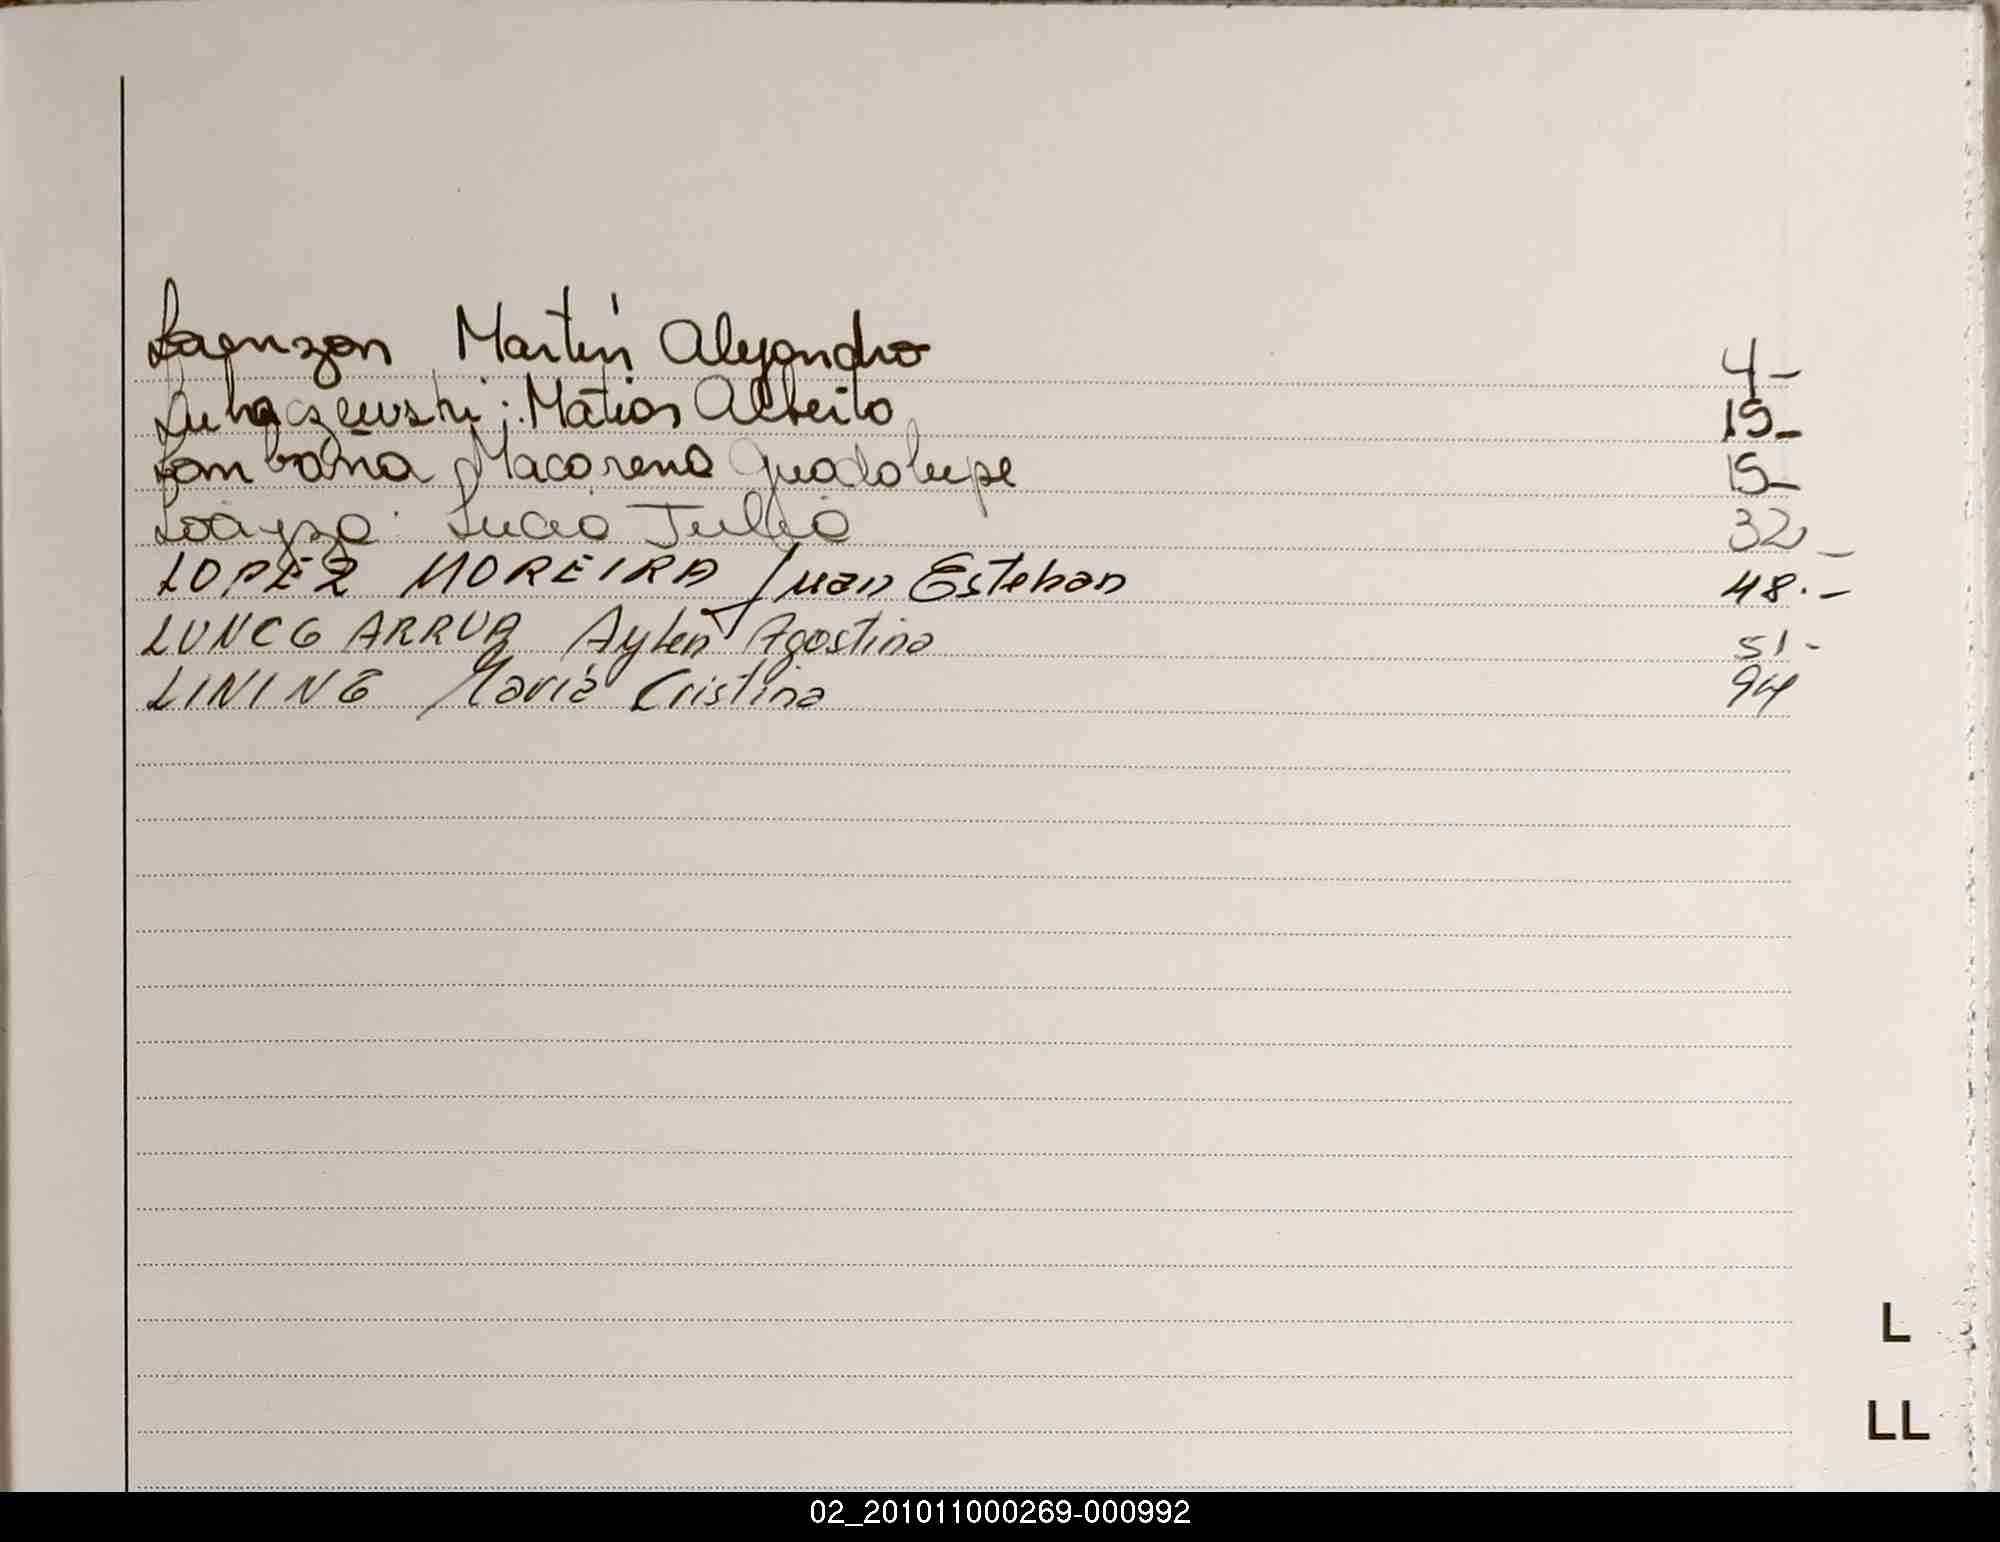 Martín Alejandro 4-
Lukaczewski: Matias Alberto 15-
Lombaña Macarena Guadalupe 15-
Loayza: Lucia Julia 32-
LOPEZ MOREIRA Juan Esteban 48.-
LUNCG ARRUA Aylen Agostina 51-
LINING María Cristina 94
L
LL
02_201011000269-000992